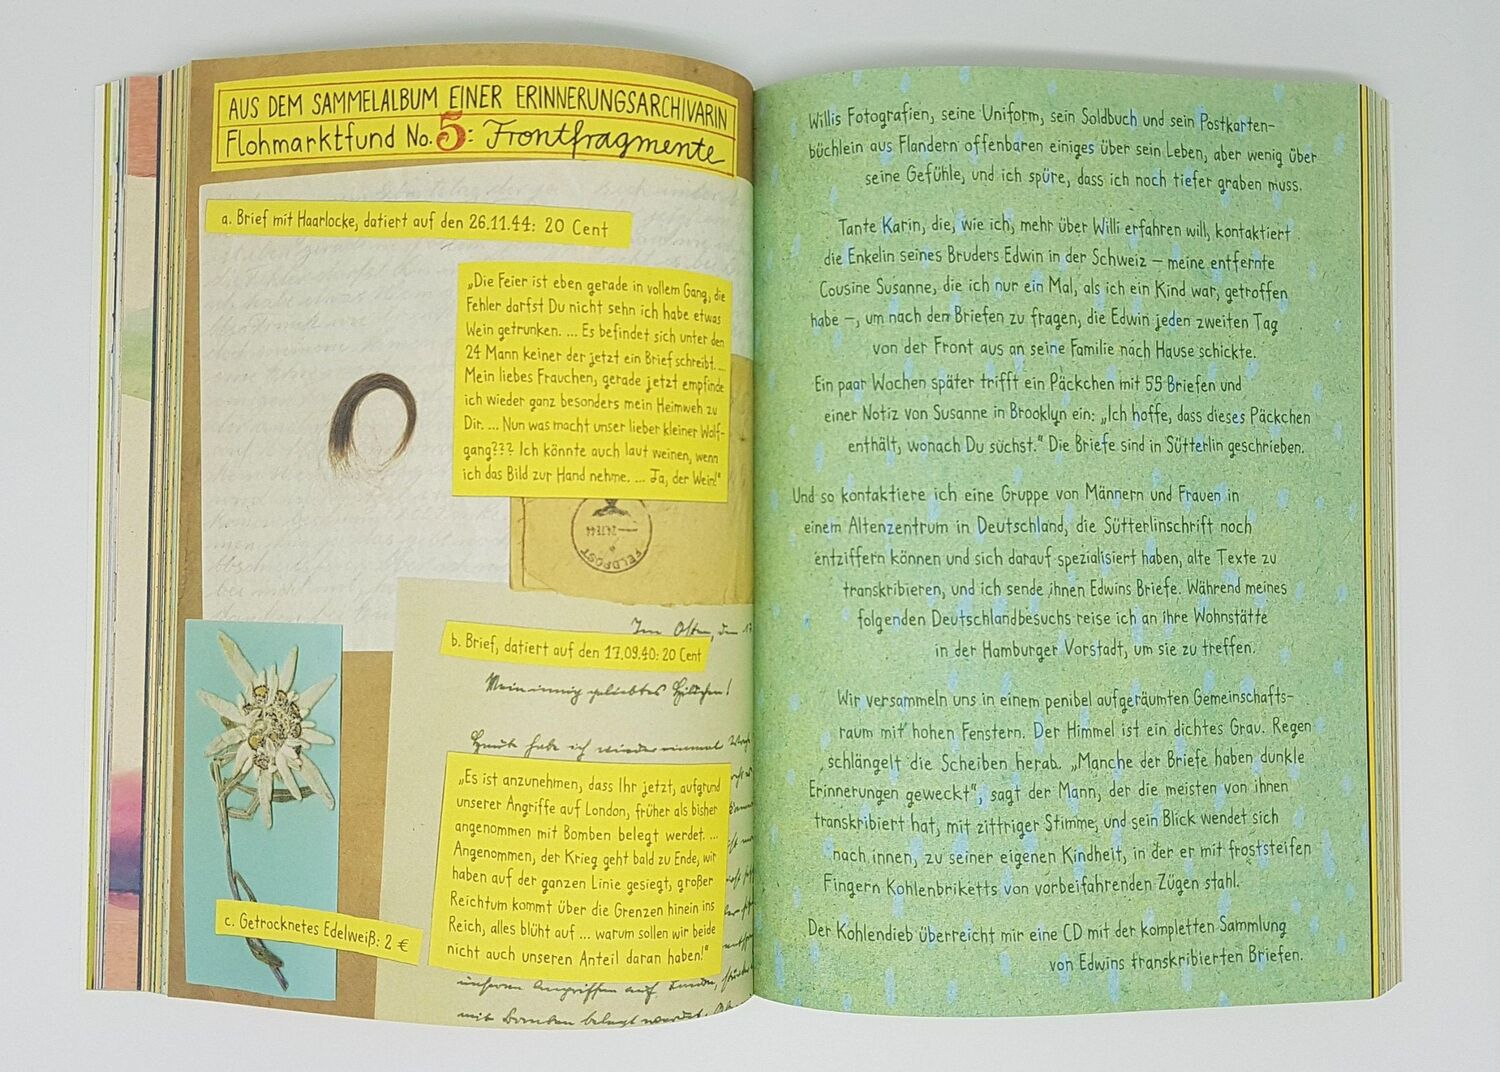 AUS DEM SAMMELALBUM EINER ERINNERUNGSARCHIVARIN
Flohmarktfund No. 5: Frontfragmente
a. Brief mit Haarlocke, datiert auf den 26.11.44: 20 Cent
„Die Feier ist eben gerade in vollem Gang, die
Fehler darfst Du nicht sehn ich habe etwas
Wein getrunken. ... Es befindet sich unter den
24 Mann keiner der jetzt ein Brief schreibt. ...
Mein liebes Frauchen, gerade jetzt empfinde
ich wieder ganz besonders mein Heimweh zu
Dir. ... Nun was macht unser lieber kleiner Wolf-
gang??? Ich könnte auch laut weinen, wenn
ich das Bild zur Hand nehme. ... Ja, der Wein!"
FELDPOST
Im Osten, den 17
b. Brief, datiert auf den 17.09.40: 20 Cent
Mein innig geliebtes Hildchen!
Heute habe ich wieder einmal
„Es ist anzunehmen, dass Ihr jetzt, aufgrund
unserer Angriffe auf London, früher als bisher
angenommen mit Bomben belegt werdet. ...
Angenommen, der Krieg geht bald zu Ende, wir
haben auf der ganzen Linie gesiegt, großer
Reichtum kommt über die Grenzen hinein ins
Reich, alles blüht auf ... warum sollen wir beide
nicht auch unseren Anteil daran haben!"
unseren Angriffen auf London,
mit Bomben belegt werdet.
c. Getrocknetes Edelweiß: 2 €
Willis Fotografien, seine Uniform, sein Soldbuch und sein Postkarten-
büchlein aus Flandern offenbaren einiges über sein Leben, aber wenig über
seine Gefühle, und ich spüre, dass ich noch tiefer graben muss.
Tante Karin, die, wie ich, mehr über Willi erfahren will, kontaktiert
die Enkelin seines Bruders Edwin in der Schweiz – meine entfernte
Cousine Susanne, die ich nur ein Mal, als ich ein Kind war, getroffen
habe –, um nach den Briefen zu fragen, die Edwin jeden zweiten Tag
von der Front aus an seine Familie nach Hause schickte.
Ein paar Wochen später trifft ein Päckchen mit 55 Briefen und
einer Notiz von Susanne in Brooklyn ein: „Ich hoffe, dass dieses Päckchen
enthält, wonach Du suchst." Die Briefe sind in Sütterlin geschrieben.
Und so kontaktiere ich eine Gruppe von Männern und Frauen in
einem Altenzentrum in Deutschland, die Sütterlinschrift noch
entziffern können und sich darauf spezialisiert haben, alte Texte zu
transkribieren, und ich sende ihnen Edwins Briefe. Während meines
folgenden Deutschlandbesuchs reise ich an ihre Wohnstätte
in der Hamburger Vorstadt, um sie zu treffen.
Wir versammeln uns in einem penibel aufgeräumten Gemeinschafts-
raum mit hohen Fenstern. Der Himmel ist ein dichtes Grau. Regen
schlängelt die Scheiben herab. „Manche der Briefe haben dunkle
Erinnerungen geweckt", sagt der Mann, der die meisten von ihnen
transkribiert hat, mit zittriger Stimme, und sein Blick wendet sich
nach innen, zu seiner eigenen Kindheit, in der er mit froststeifen
Fingern Kohlenbriketts von vorbeifahrenden Zügen stahl.
Der Kohlendieb überreicht mir eine CD mit der kompletten Sammlung
von Edwins transkribierten Briefen.